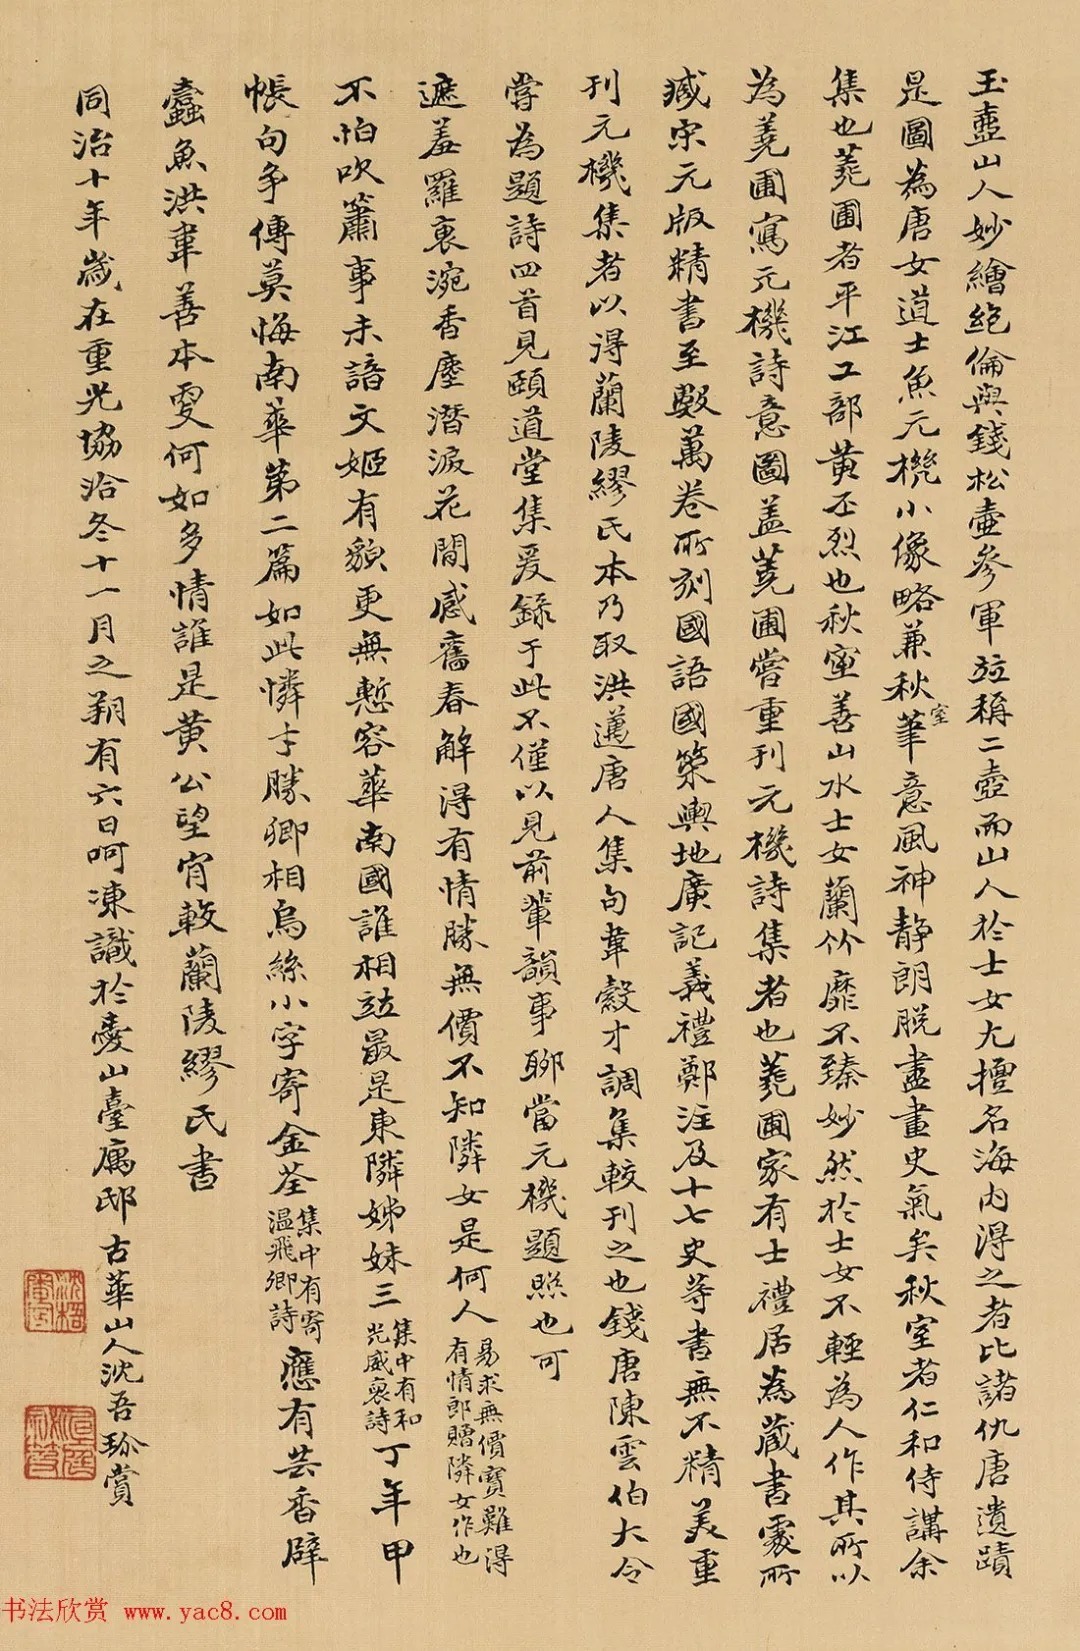 玉壺山人妙繪絕倫與錢松壺參軍竝稱二壺而山人於士女尤擅名海內得之者比諸仇唐遺蹟
是圖為唐女道士魚元機小像略兼秋室筆意風神靜朗脫盡畫史氣矣秋室者仁和侍講余
集也蕘圃者平江工部黃丕烈也秋室善山水士女蘭竹靡不臻妙然於士女不輕為人作其所以
為蕘圃寫元機詩意圖蓋蕘圃嘗重刊元機詩集者也蕘圃家有士禮居為藏書處所
臧宋元版精書至數萬卷所刻國語國策輿地廣記義禮鄭注及十七史等書無不精美重
刊元機集者以得蘭陵繆氏本乃取洪邁唐人集句韋縠才調集較刊之也錢唐陳雲伯大令
嘗為題詩四首見頤道堂集爰錄于此不僅以見前輩韻事聊當元機題照也可
遮羞羅裏涴香塵潛淚花間感舊春解得有情勝無價不知隣女是何人易求無價寶難得有情郎贈隣女作也
不怕吹簫事未諳文姬有貌更無慙容華南國誰相竝最是東隣姊妹三集中有和光威裒詩丁年甲
帳句爭傳莫悔南華第二篇如此憐才勝卿相烏絲小字寄金荃集中有寄溫飛卿詩應有芸香辟
蠹魚洪韋善本更何如多情誰是黃公望肯較蘭陵繆氏書
同治十年歲在重光協洽冬十一月之朔有六日呵凍識於臺山臺寓邸古華山人沈吾珎賞
沈梧
書法欣赏 www.yac8.com